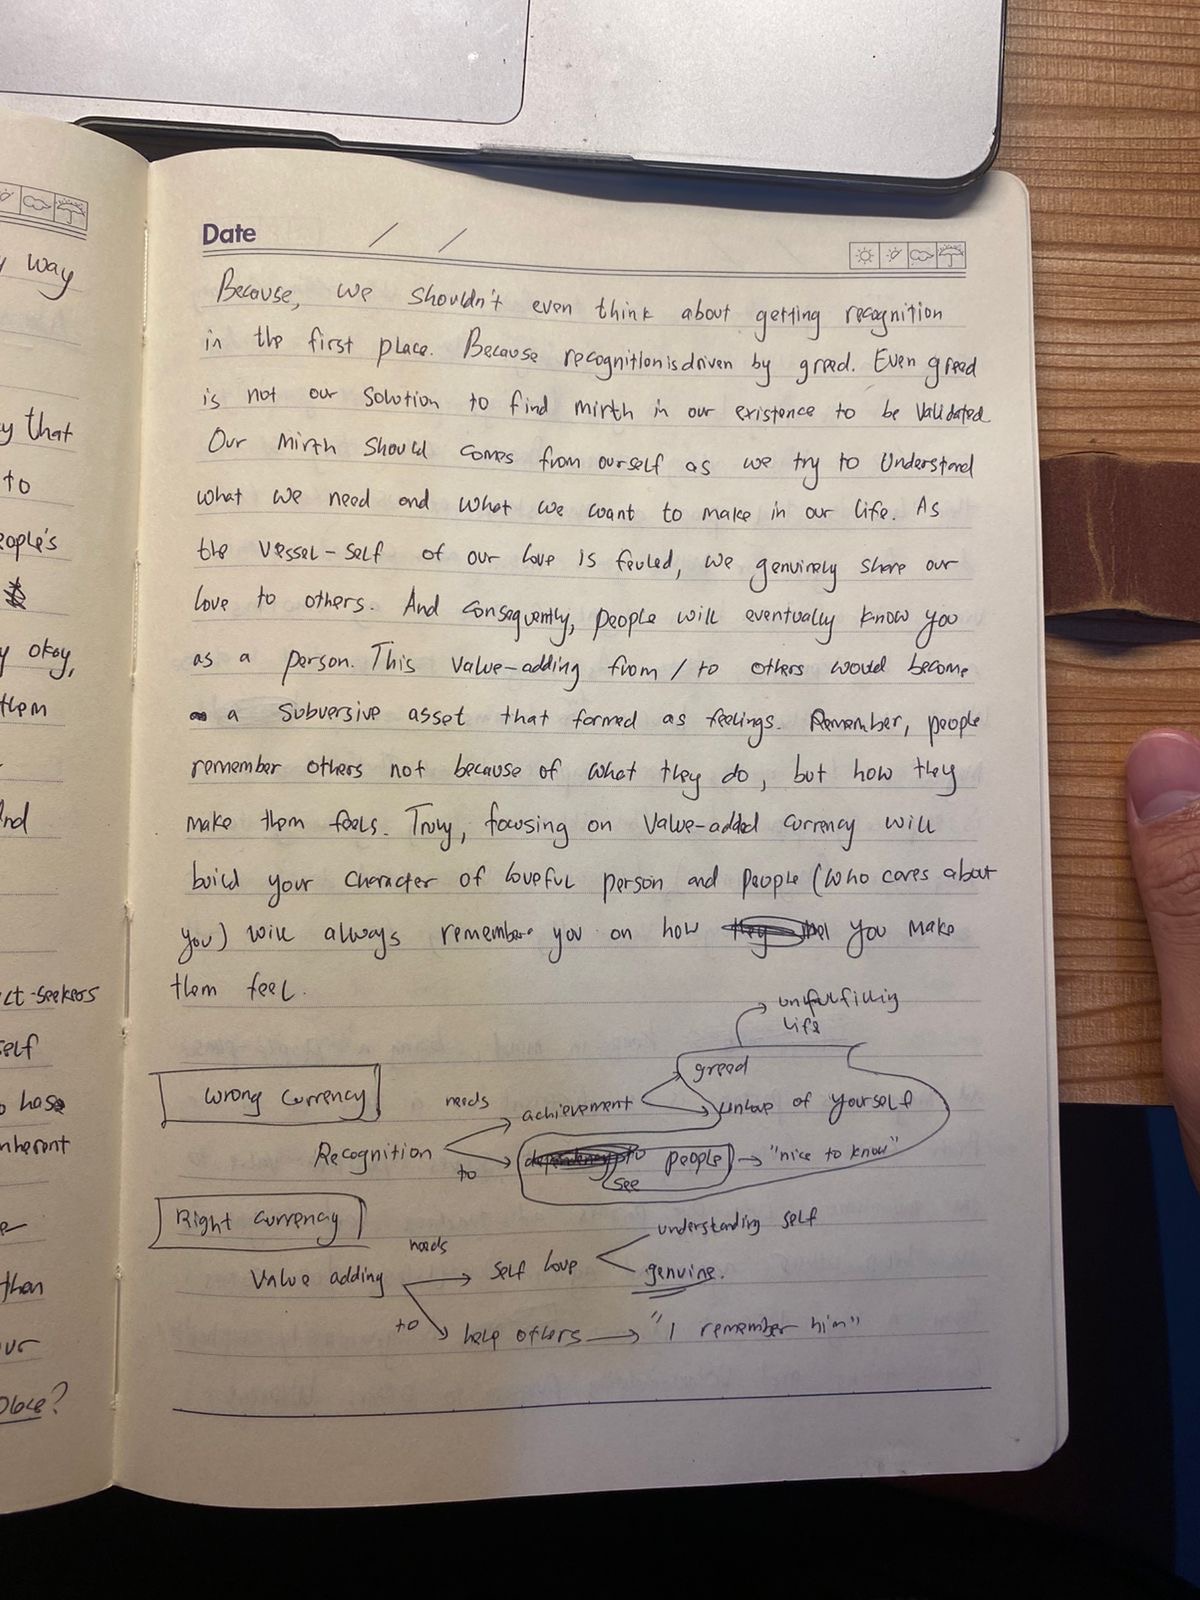 way
that
to
people's
okay,
them
And
self
inherent
than
our
place?
Date / /
Because, we shouldn't even think about getting recognition
in the first place. Because recognition is driven by greed. Even greed
is not our solution to find mirth in our existence to be validated
Our mirth should comes from ourself as we try to understand
what we need and what we want to make in our life. As
the vessel-self of our love is feuled, we genuinely share our
love to others. And consequently, people will eventually know you
as a person. This value-adding from / to others would become
a subversive asset that formed as feelings. Remember, people
remember others not because of what they do, but how they
make them feels. Truly, focusing on value-added currency will
build your character of loveful person and people (who cares about
you) will always remember you on how you make
them feel.
unfulfilling
life
greed
Wrong currency
needs
achievement
unlove of yourself
Recognition
to
people
"nice to know"
see
Right currency
understanding self
needs
Value adding
self love
genuine.
to
help others
"I remember him"